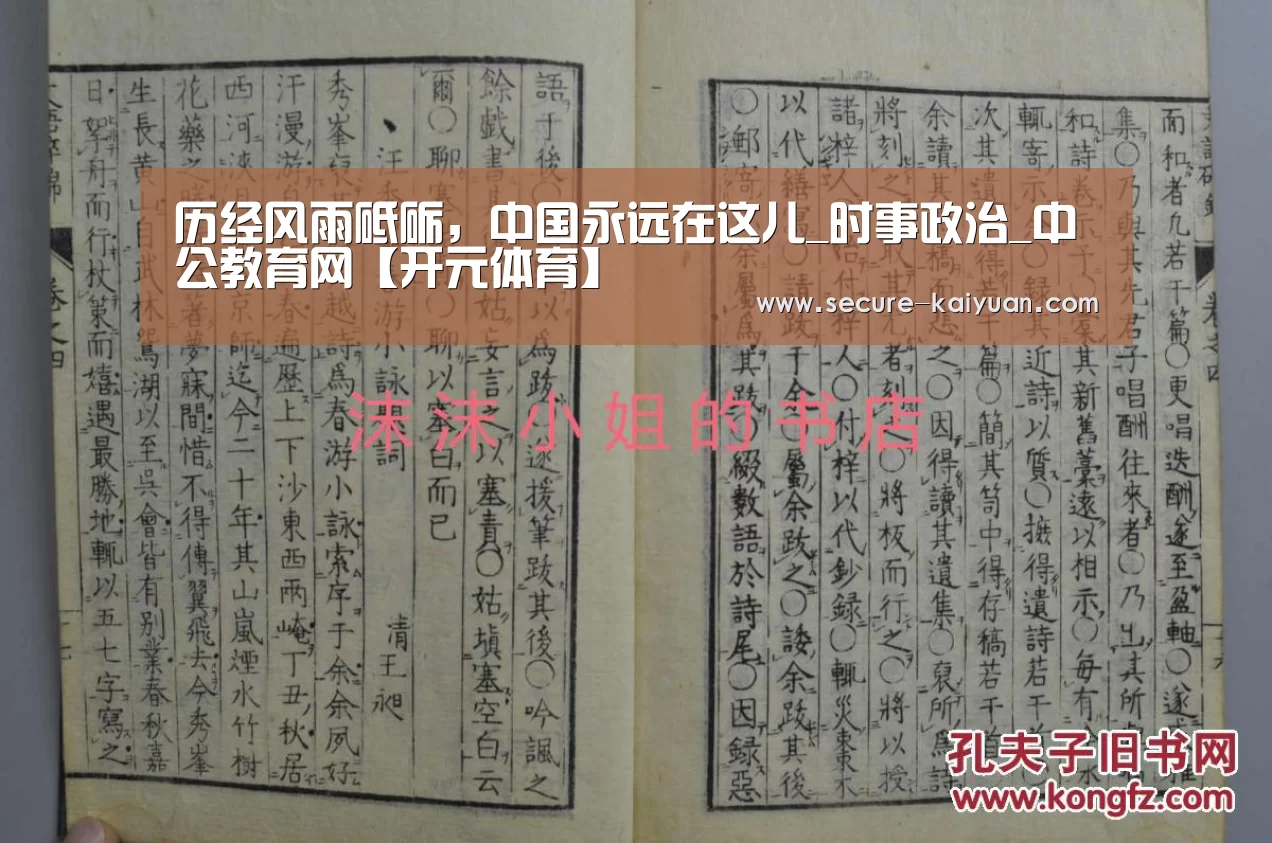 历经风雨砥砺，中国永远在这儿_时事政治_中
公教育网【开元体育】
www.secure-kaiyuan.com
沫沫小姐的书店
而和者九若干篇〇更唱迭酬遂至盈軸〇遂
集〇乃與其先君子唱酬往來者〇乃出其所
和詩卷示予〇裒其新舊藁遠以相示〇每有
輒寄示〇錄其近詩以質〇摭得遺詩若干首
次其遺得若干篇〇簡其笥中得存稿若干首
余讀其稿而悲之〇因得讀其遺集〇裒所為詩
將刻之取其尤者刻〇將板而行之〇將以授
諸梓人治付梓人〇付梓以代鈔録〇輒災棗東不
以代繕寫〇請跋于余〇屬余跋之〇諉余跋其後
〇郵寄余屬爲其跋〇綴數語於詩尾〇因録惡
語于後〇以爲跋〇遂援筆跋其後〇吟諷之
餘戲書其姑妄言之以塞責〇姑塡塞空白云
爾〇聊塞〇聊以塞白而已
汪秀游小詠題詞
清王昶
秀峯越詩爲春游小詠索序于余余夙好
汗漫游春遍歷上下沙東西兩崦丁丑秋居
西河京師迄今二十年其山嵐煙水竹樹
花藥之勝著夢寐間惜不得傳翼飛去今秀峯
生長黄自武林鴛湖以至吳會皆有別業春秋嘉
日拏舟而行杖策而嬉遇最勝地輒以五七字寫之
卷之四
孔夫子旧书网
www.kongfz.com